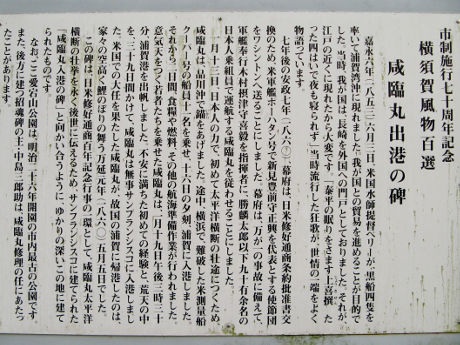 市制施行七十周年記念
横須賀風物百選
咸臨丸出港の碑
嘉永六年(一八五三)六月三日、米国水師提督ペリーが黒船四隻を
率いて浦賀湾沖に現れました。我が国との貿易を進めることが目的で
した。当時、我が国は長崎を外国への門戸としておりました。それが、
江戸の近くに現れたから大変です。「泰平の眠りをさます上喜撰 た
った四はいで夜も寝られず」当時流行した狂歌が、世情の一端をよく
物語っています。
七年後の安政七年(一八六〇)、幕府は、日米修好通商条約批准書交
換のため、米軍艦ポーハタン号で新見豊前守正興を代表とする使節団
をワシントンへ送ることにしました。幕府は、万が一の事故に備えて、
軍艦奉行木村摂津守喜毅を指揮者に、勝麟太郎以下九十有余名の
日本人乗組員で運航する咸臨丸を従わせることにしました。
一月十三日、日本人の力で、初めて太平洋横断の壮途につくため、
咸臨丸は、品川沖で錨をあげました。途中、横浜で、難破した米測量船
クーパー号の船員十一名を乗せ、十六日の夕刻、浦賀に入港しました
それから二日間、食料や燃料、その他の航海準備作業が行われました
意気天をつく若者たちを乗せた咸臨丸は、一月十九日午後三時三十
分、浦賀港を出帆しました。不安に満ちた初めての経験と、荒天の中
を、三十九日間かけて、咸臨丸は無事サンフランシスコに入港しまし
た。米国での大任を果たした咸臨丸が、故国の浦賀に帰港したのは、
家々の空高く鯉のぼりの舞う万延元年(一八六〇)五月五日でした。
この碑は、日米修好通商百年記念行事の一環として、咸臨丸太平洋
横断の壮挙を永く後世に伝えるため、サンフランシスコに建てられた
「咸臨丸入港の碑」と向かい合うように、ゆかりの深いこの地に建て
られたものです。
なお、ここ愛宕山公園は、明治二十六年開園の市内最古の公園です
また、後方に建つ招魂碑の主・中島三郎助は、咸臨丸修理の任にあたっ
たことがあります。